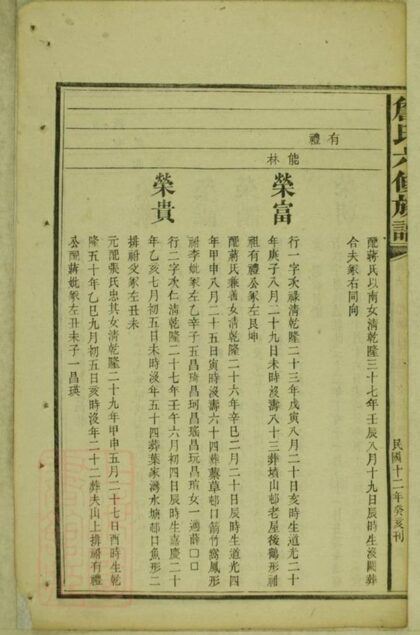 詹氏六修族譜
民國十二年癸亥刊
配蔣氏以南女清乾隆三十七年壬辰八月十九日辰時生沒闕葬
合夫冢右同向
有禮
能林
榮富
行一字次祿清乾隆二十三年戊寅八月二十日亥時生道光二十
年庚子八月二十九日未時沒壽八十三葬墳山邨老屋後鶴形祔
祖有禮公冢左艮坤
配蔣氏兼善女清乾隆二十六年辛巳二月二十日辰時生道光四
年甲申八月二十五日寅時沒壽六十四葬蔡草邨口箭竹窩鳳形
祔李妣冢左乙辛子五昌琦昌珂昌瑤昌玩昌 女一適薛口口
榮貴
行二字次仁清乾隆二十七年壬午六月初四日辰時生嘉慶二十
年乙亥七月初五日未時沒年五十四葬葉家灣水塘邨口魚形二
排祔父冢左丑未
元配張氏忠其女清乾隆二十九年甲申五月二十七日酉時生乾
隆五十年乙巳九月初五日亥時沒年二十二葬夫山上排祔有禮
公配蔣妣冢左丑未子一昌瑛